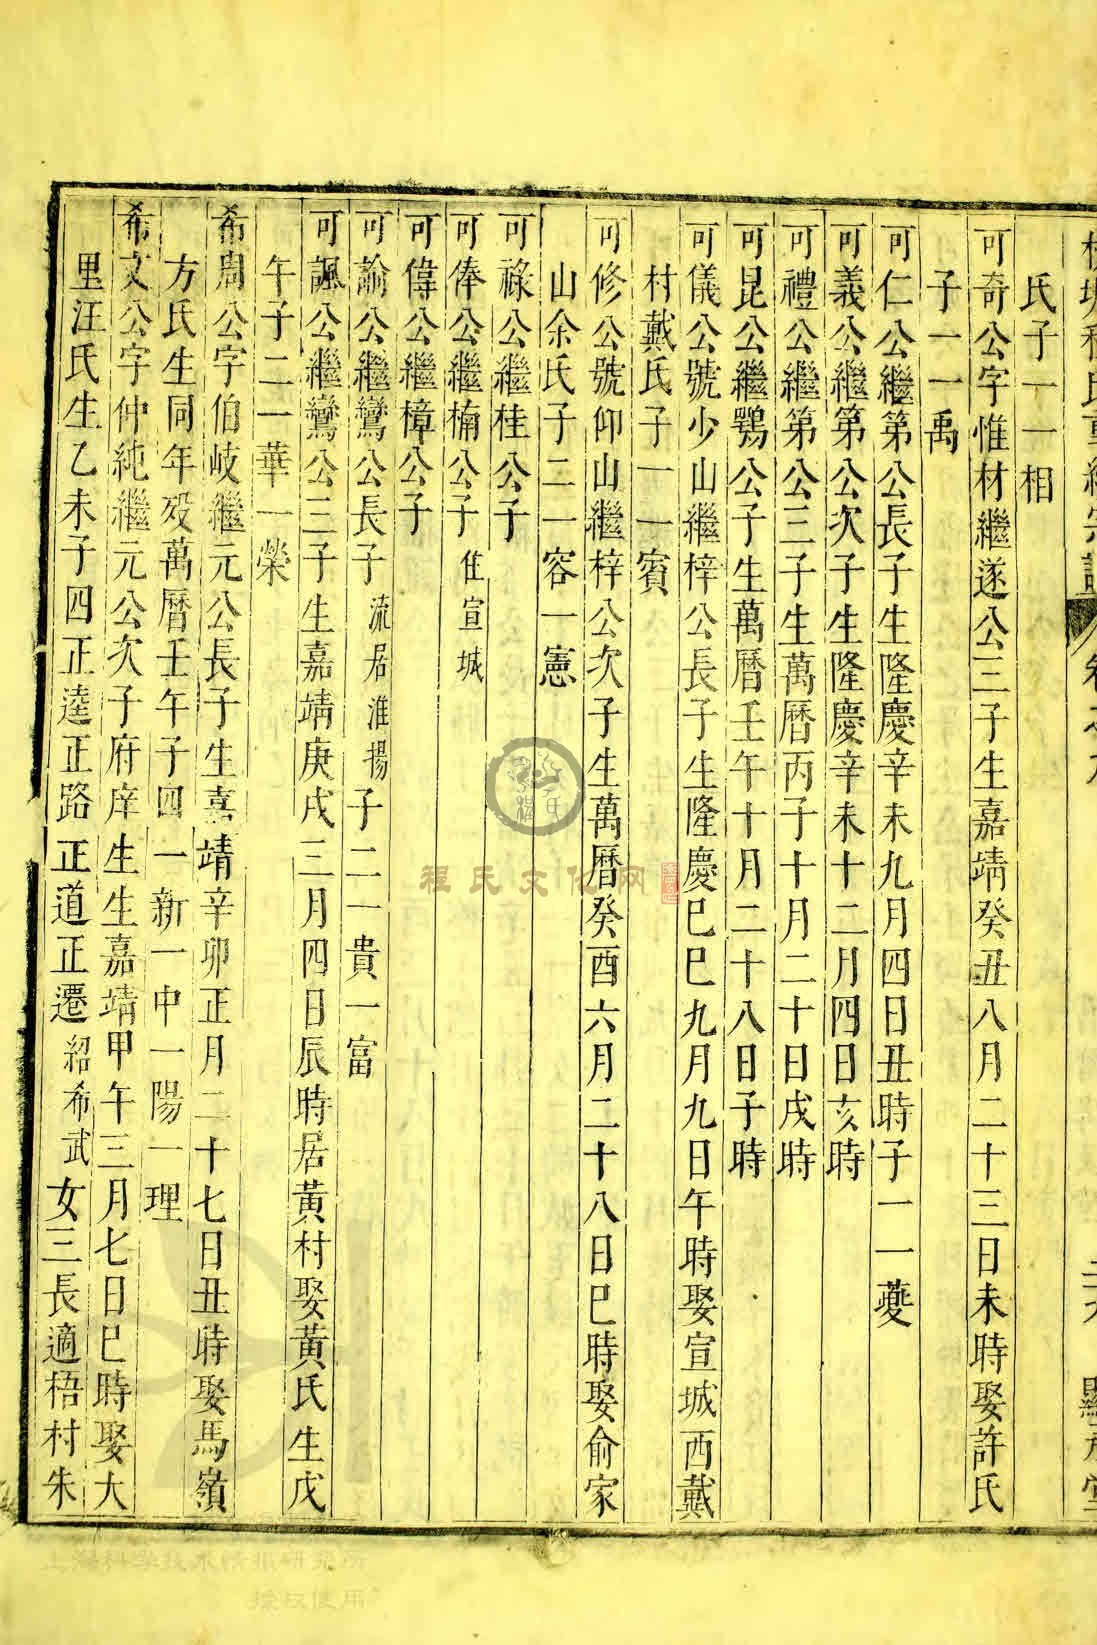 氏子一一相
可奇公字惟材繼遂公三子生嘉靖癸丑八月二十三日未時娶許氏
子一一禹
可仁公繼第公長子生隆慶辛未九月四日丑時子一一夔
可義公繼第公次子生隆慶辛未十二月四日亥時
可禮公繼第公三子生萬曆丙子十月二十日戌時
可昆公繼鶚公子生萬曆壬午十月二十八日子時
可儀公號少山繼梓公長子生隆慶巳巳九月九日午時娶宣城西戴
村戴氏子一一賓
可修公號仰山繼梓公次子生萬曆癸酉六月二十八日巳時娶俞家
山余氏子二一容一憲
可祿公繼桂公子
可俸公繼楠公子住宣城
可偉公繼樟公子
可諭公繼鸞公長子流居淮揚子二一貴一富
可諷公繼鸞公三子生嘉靖庚戌三月四日辰時居黃村娶黃氏生戊
午子二一華一榮
希周公字伯岐繼元公長子生嘉靖辛卯正月二十七日丑時娶馬嶺
方氏生同年歿萬曆壬午子四一新一中一陽一理
希文公字仲純繼元公次子府庠生生嘉靖甲午三月七日巳時娶大
里汪氏生乙未子四正逵正路正道正遷紹希武女三長適梧村朱
程氏文化网
上海科学技术情报研究所
授权使用